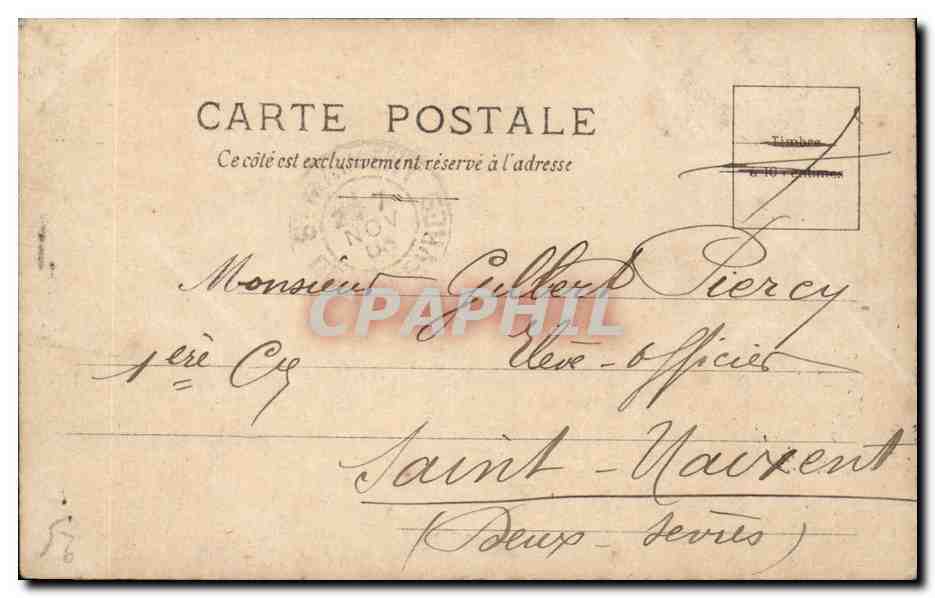 CARTE POSTALE
Ce côté est exclusivement réservé à l'adresse
Timbre
à 10 centimes
7
NOV
Monsieur Gilbert Piercy
CPAPHIL
1ère Cie Elève-officier
Saint-Maixent
(Deux-Sèvres)
56